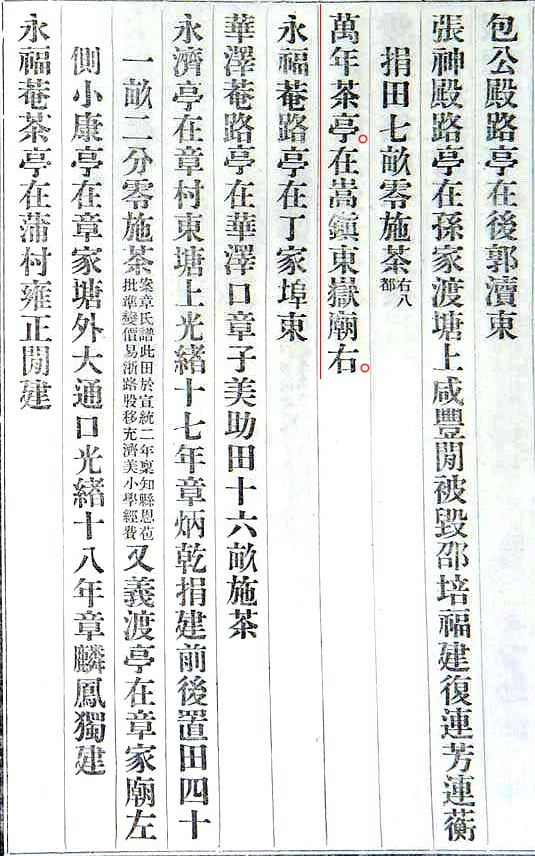 包公殿路亭在後郭瀆東
張神殿路亭在孫家渡塘上咸豐閒被毀邵培福建復連芳連蘅
捐田七畝零施茶右八都
萬年茶亭。在嵩鎮東嶽廟右。
永福菴路亭在丁家埠東
華澤菴路亭在華澤口章子美助田十六畝施茶
永濟亭在章村東塘上光緒十七年章炳乾捐建前後置田四十
一畝二分零施茶案章氏譜此田於宣統二年稟知縣恩苞批準變價易浙路股移充濟美小學經費又義渡亭在章家廟左
側小康亭在章家塘外大通口光緒十八年章麟鳳獨建
永福菴茶亭在蒲村雍正閒建